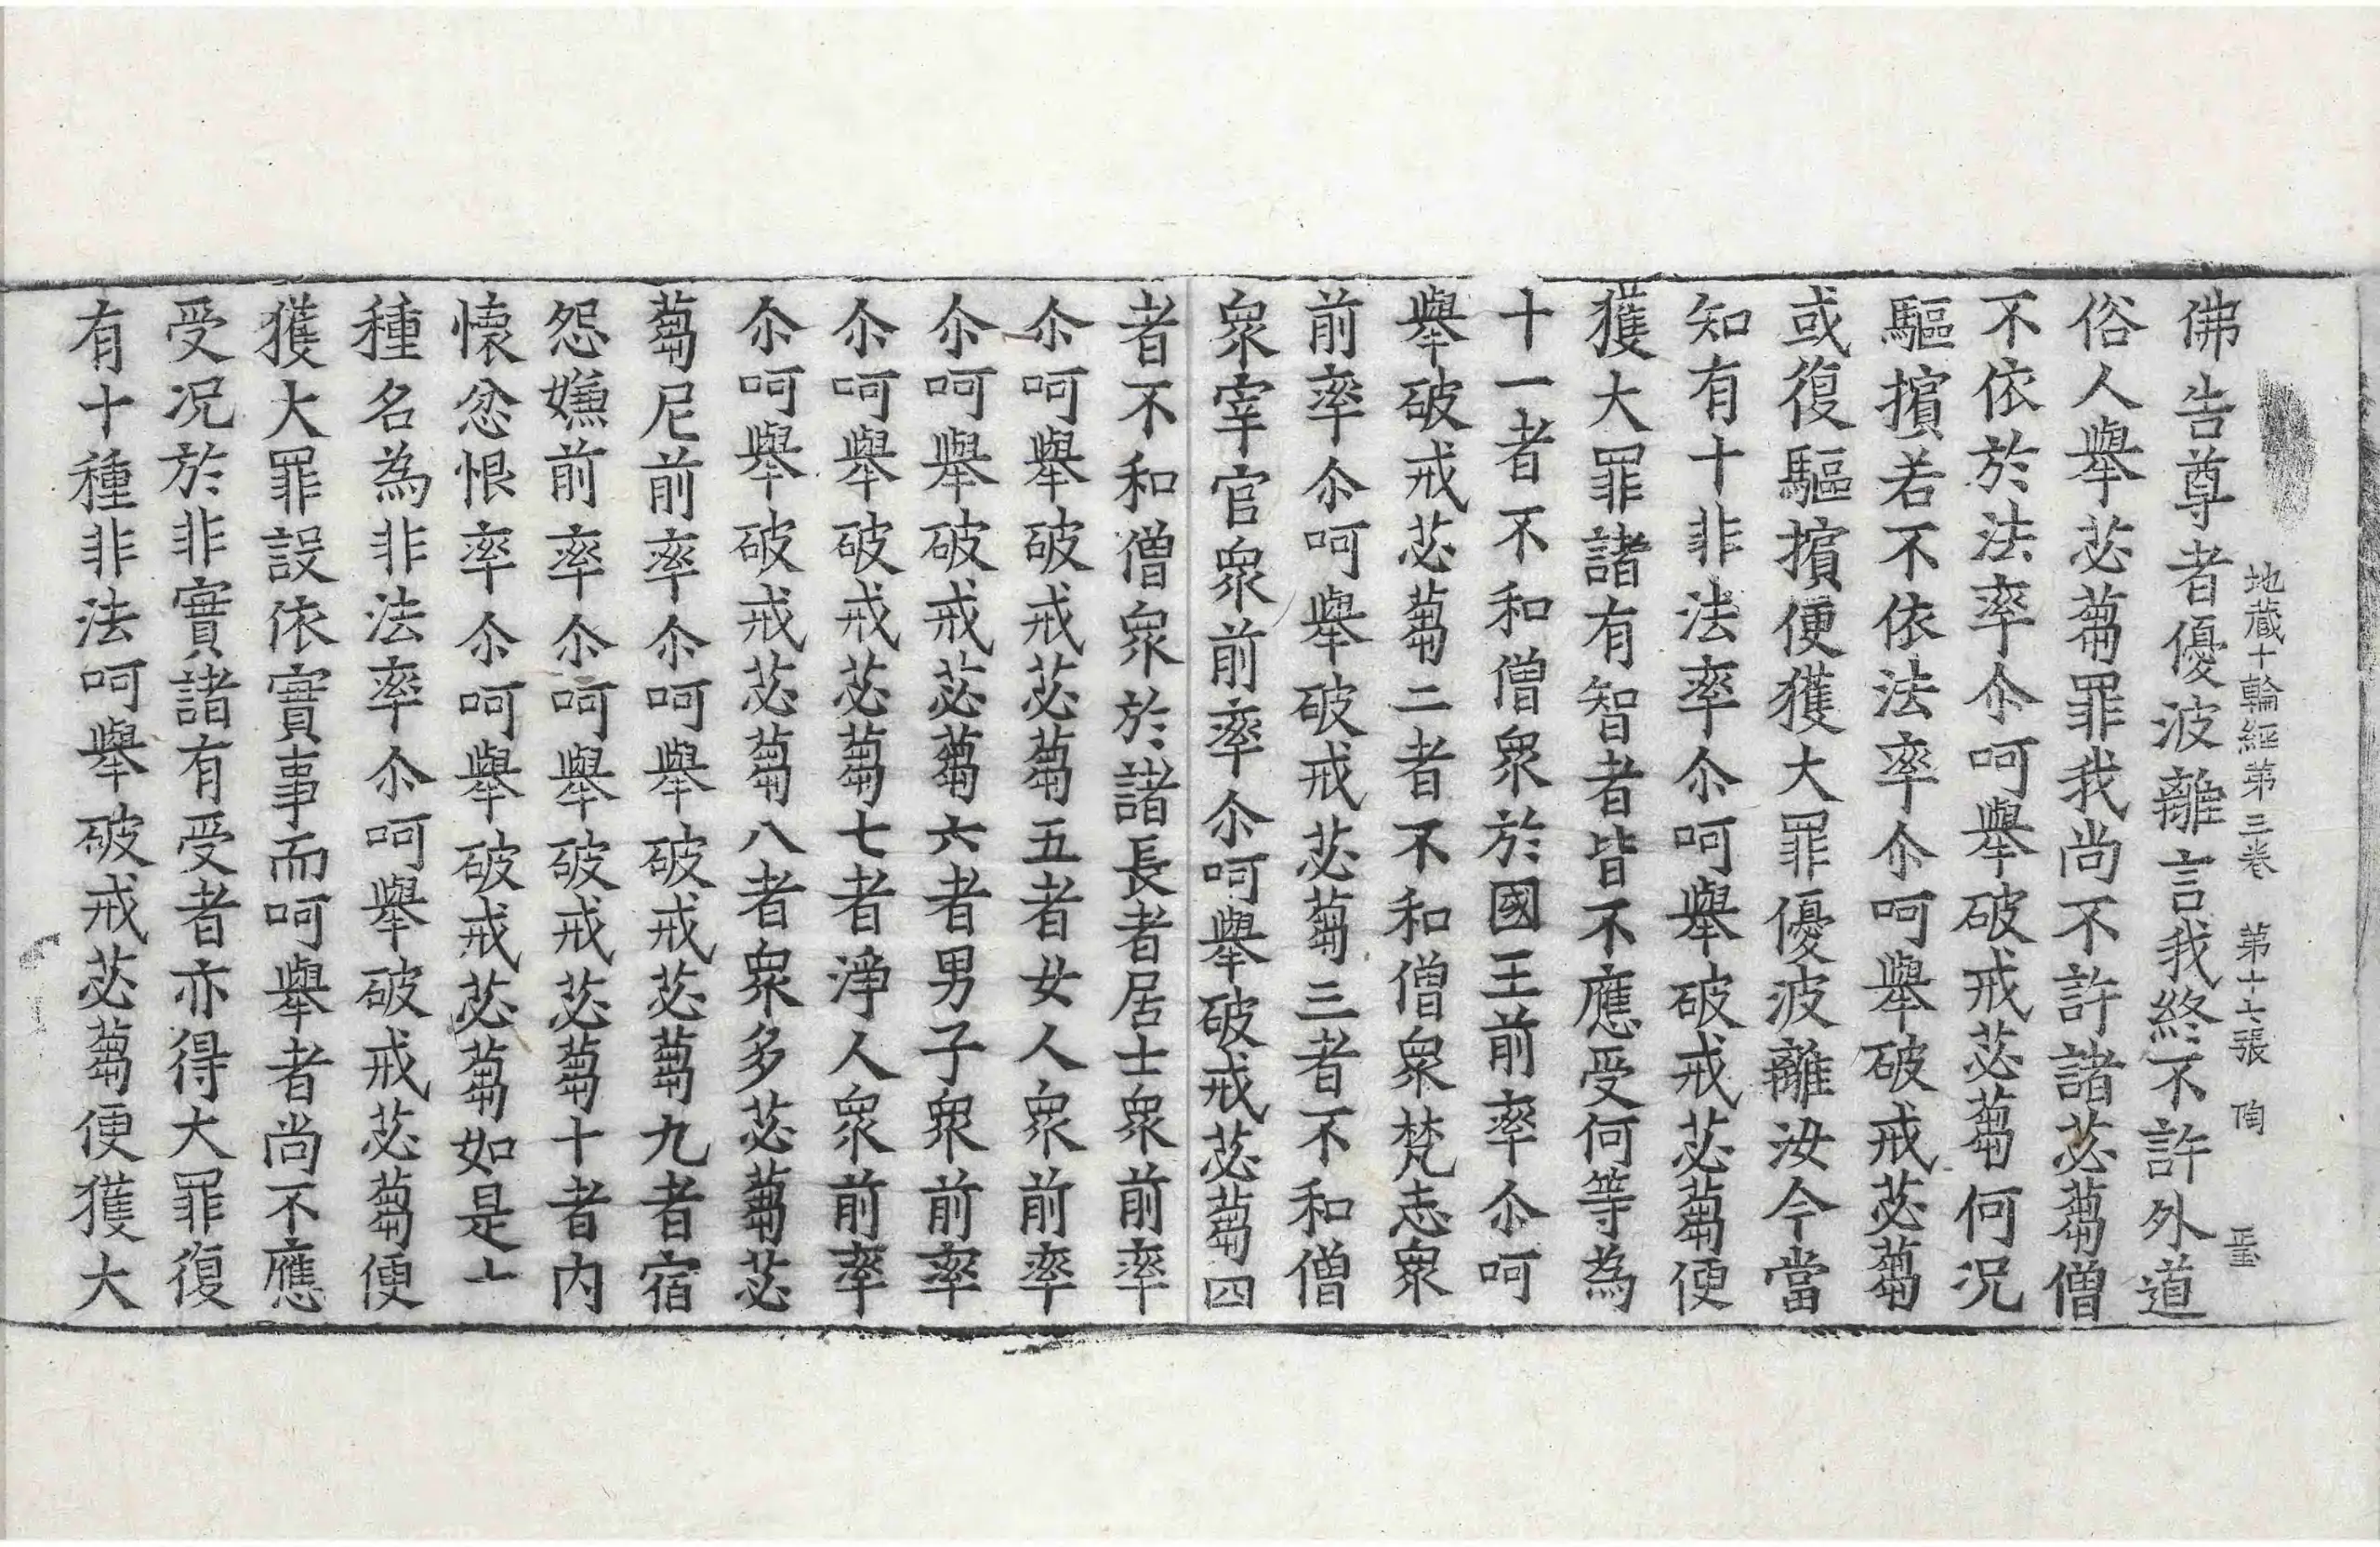 地藏十輪經第三卷　第十七張　陶
佛告尊者優波離言我終不許外道
俗人舉苾蒭罪我尚不許諸苾蒭僧
不依於法率尒呵舉破戒苾蒭何況
驅擯若不依法率尒呵舉破戒苾蒭
或復驅擯便獲大罪優波離汝今當
知有十非法率尒呵舉破戒苾蒭便
獲大罪諸有智者皆不應受何等為
十一者不和僧眾於國王前率尒呵
舉破戒苾蒭二者不和僧眾梵志眾
前率尒呵舉破戒苾蒭三者不和僧
眾宰官眾前率尒呵舉破戒苾蒭四
者不和僧眾於諸長者居士眾前率
尒呵舉破戒苾蒭五者女人眾前率
尒呵舉破戒苾蒭六者男子眾前率
尒呵舉破戒苾蒭七者淨人眾前率
尒呵舉破戒苾蒭八者眾多苾蒭苾
蒭尼前率尒呵舉破戒苾蒭九者宿
怨嫌前率尒呵舉破戒苾蒭十者內
懷忿恨率尒呵舉破戒苾蒭如是十
種名為非法率尒呵舉破戒苾蒭便
獲大罪設依實事而呵舉者尚不應
受况於非實諸有受者亦得大罪復
有十種非法呵舉破戒苾蒭便獲大